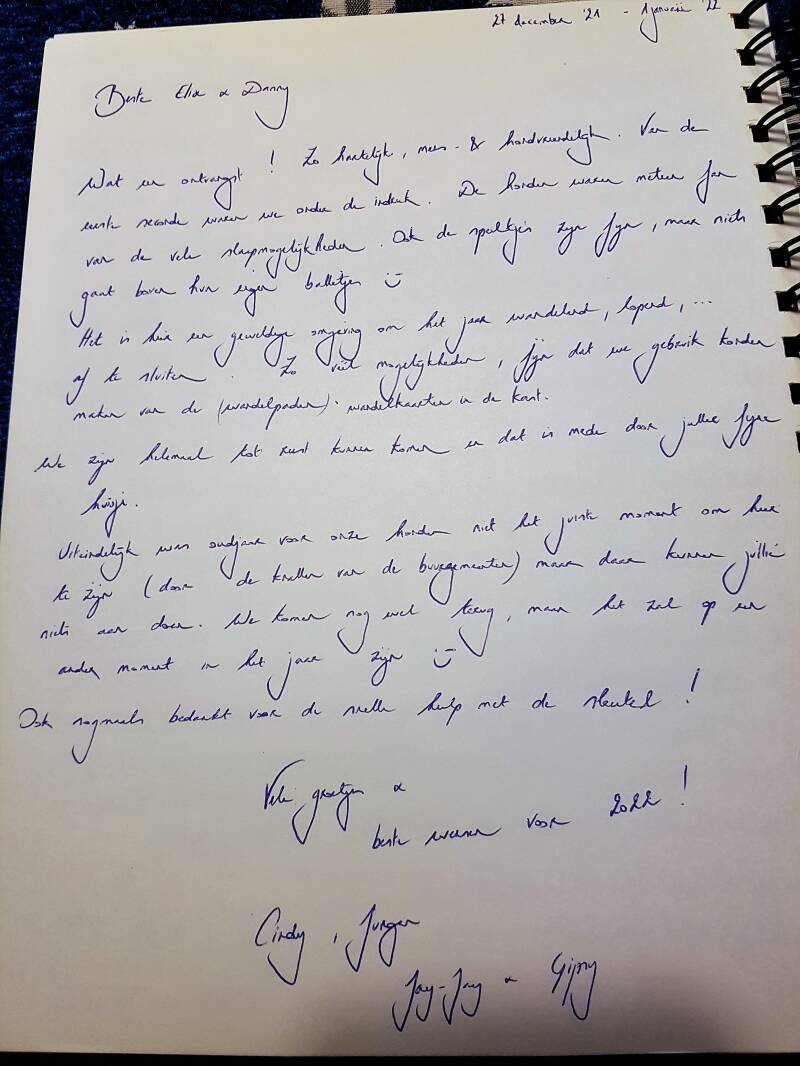 27 december '21 - 1 januari '22
Beste Elise & Danny
Wat een ontvangst ! Zo hartelijk, mens- & hondvriendelijk. Van de
eerste seconde waren we onder de indruk. De honden waren meteen fan
van de vele slaapmogelijkheden. Ook de speeltjes zijn fijn, maar niets
gaat boven hun eigen balletjes :)
Het is hier een geweldige omgeving om het jaar wandelend, lopend, ...
af te sluiten. Zo véél mogelijkheden, fijn dat we gebruik konden
maken van de (wandelpaden)- wandelkaarten in de kast.
We zijn helemaal tot rust kunnen komen en dat is mede door jullie fijne
huisje.
Uiteindelijk was oudjaar voor onze honden niet het juiste moment om hier
te zijn (door de knallen van de buurgemeenten) maar daar kunnen jullie
niets aan doen. We komen nog wel terug, maar het zal op een
ander moment in het jaar zijn :)
Ook nogmaals bedankt voor de snelle hulp met de sleutel !
Vele groetjes &
beste wensen voor 2022 !
Cindy, Jurgen
Jay-Jay & Gipsy